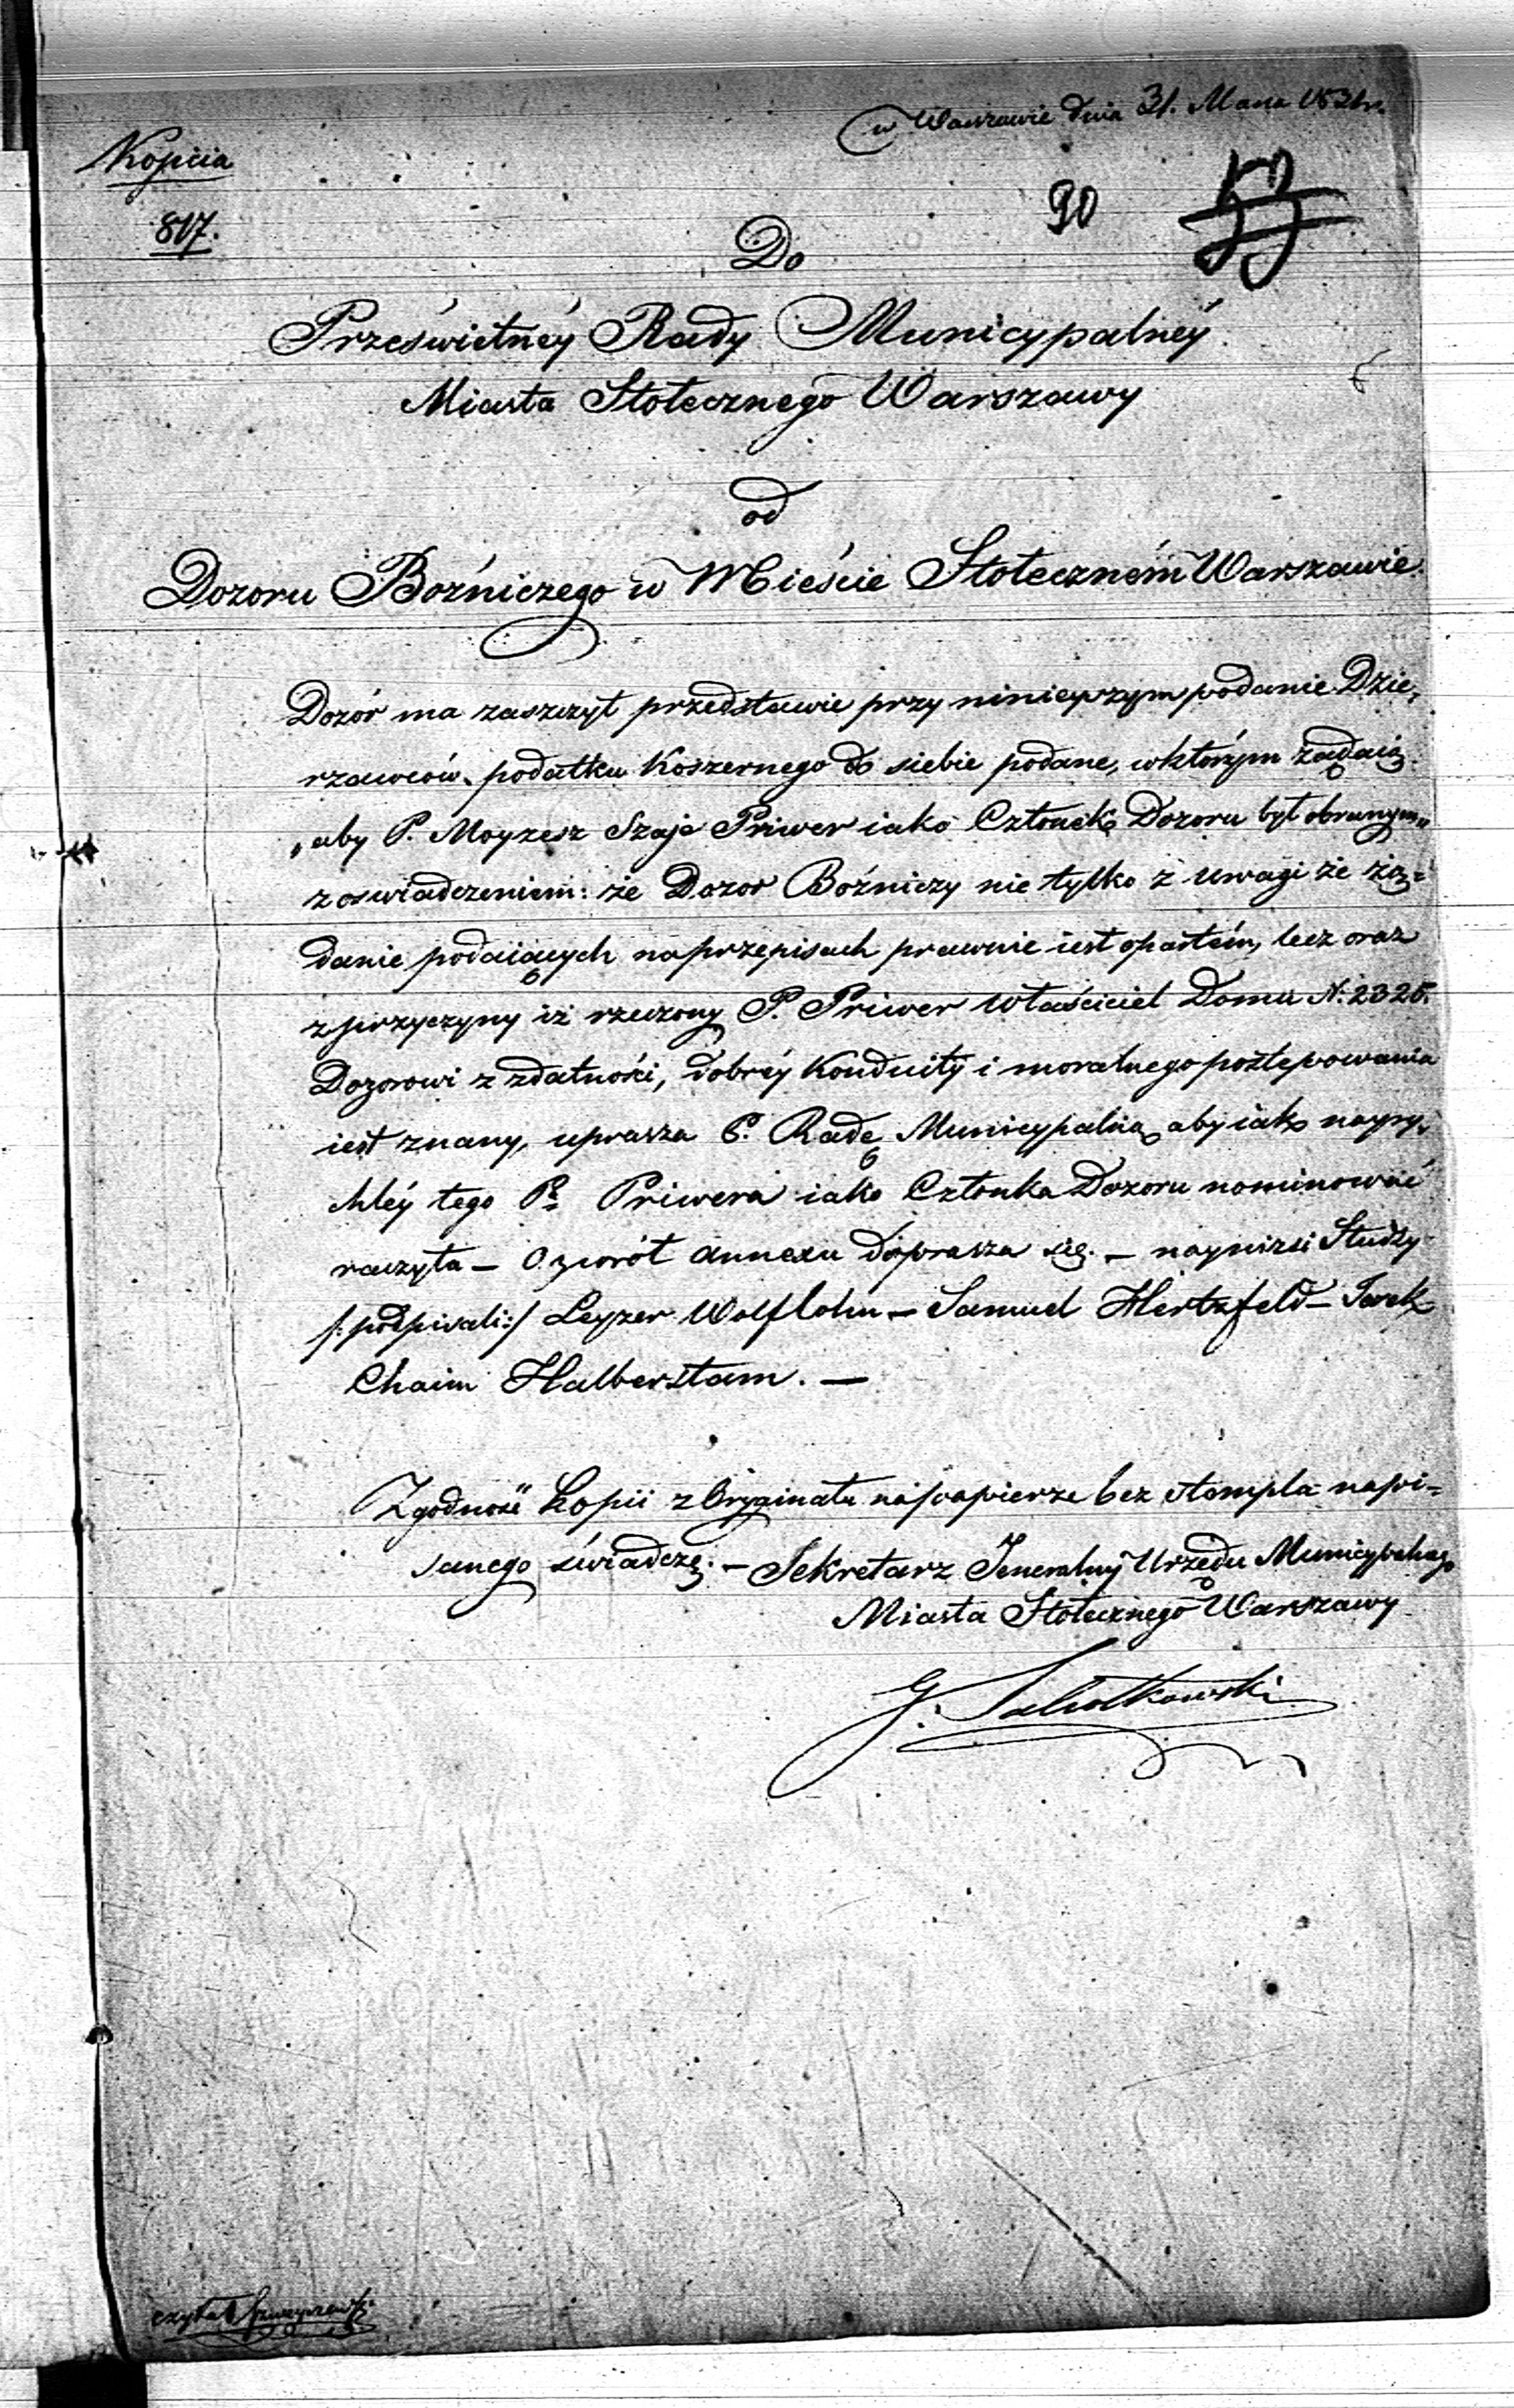 w Warszawie dnia 31. Marca 1831 r.
Kopiia
817.
90
53
Do
Prześwietnéy Rady Municypalnéy
Miasta Stołecznego Warszawy
od
Dozoru Bożniczego w Mieście Stołeczném Warszawie.
Dozór ma zaszczyt przedstawić przy ninieyszym podanie Dzie-
rzawców podatku Koszernego do siebie podane, w którym żądaią
„aby P. Moyzesz Szaje Priwer iako Członek Dozoru był obranym„
z oswiadczeniem: że Dozor Bożniczy nie tylko z uwagi że żą=
danie podaiących na przepisach prawnie iest opartém, lecz oraz
z przyczyny iż rzeczony P. Priwer Właściciel Domu N. 2325.
Dozorowi z zdatności, dobréy Konduity i moralnego postępowania
iest znany, uprasza P. Radę Municypalną aby iak nayry-
chléy tego Pa Priwera iako Członka Dozoru nominować
raczyła — O zwrót annexu doprasza się. — nayniżsi Słudzy
/: podpisali :/ Leyzer Wolflohn — Samuel Hertzfeld —
Chaim Halberstam. —
Zgodność kopii z Oryginału na papierze bez stempla napi=
sanego świadczę. — Sekretarz Jeneralny Urzędu Municypalnego
Miasta Stołecznego Warszawy
czytał